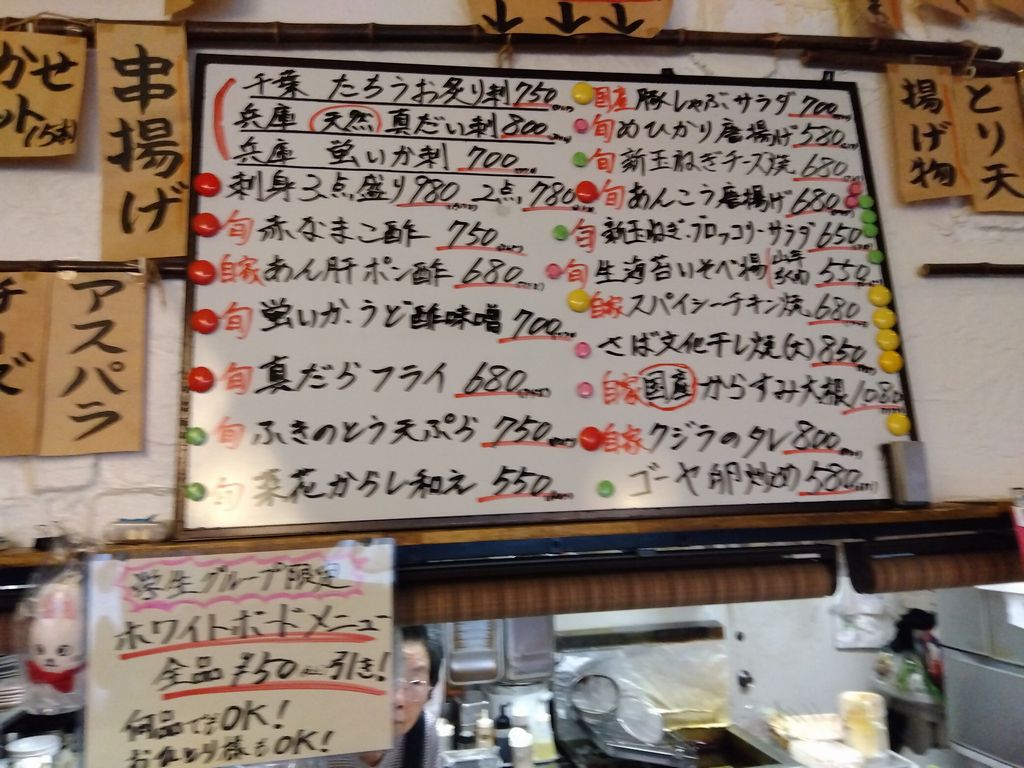 かせ
ット15本
串揚げ
千葉 たちうお炙り刺750
兵庫 天然 真だい刺800
兵庫 蛍いか刺 700
刺身3点盛り980 2点780
旬赤なまこ酢 750
自家あん肝ポン酢 680
旬 蛍いか、うど酢味噌 700
旬 真だらフライ 680
旬 ふきのとう天ぷら 750
旬 菜花からし和え 550
国産豚しゃぶサラダ700
旬めひかり唐揚げ580
旬新玉ねぎチーズ焼 680
旬あんこう唐揚げ680
旬 新玉ねぎ・ブロッコリーサラダ650
旬生海苔いそべ揚 550
自家スパイシーチキン焼680
さば文化干し焼(大)850
自家国産からすみ大根1080
自家クジラのタレ800
ゴーヤ卵炒め580
揚げ物
とり天
アスパラ
学生グループ限定
ホワイトボードメニュー
全品¥50 引き!
何品でもOK!
おひとり様もOK!